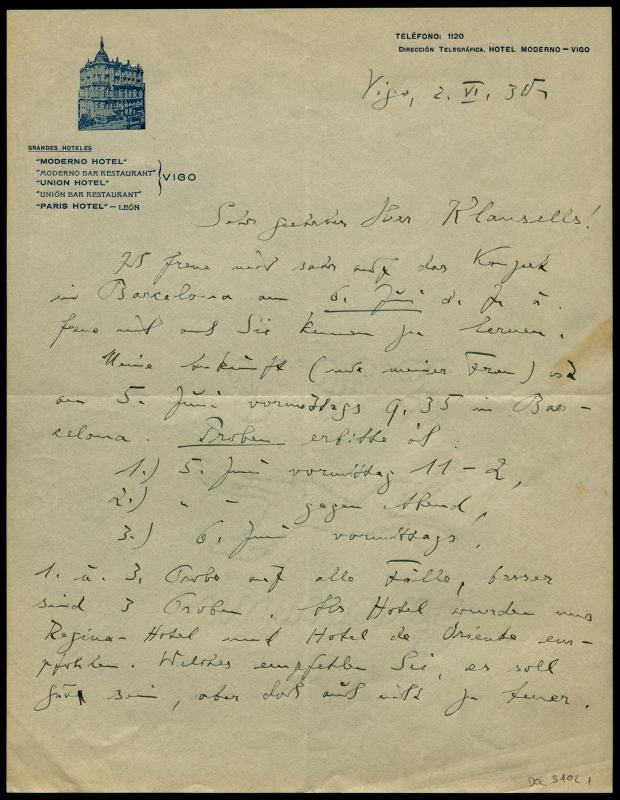 TELÉFONO: 1120
DIRECCIÓN TELEGRÁFICA. HOTEL MODERNO – VIGO
Vigo, 2. VI. 35
GRANDES HOTELES
"MODERNO HOTEL"
"MODERNO BAR RESTAURANT"
"UNION HOTEL"
"UNIÓN BAR RESTAURANT"
"PARIS HOTEL" – LEÓN
VIGO
Sehr geehrter Herr Klausells!
Ich freue mich sehr auf das Konzert
in Barcelona am 6. Juni d. J. u.
freue mich auch Sie kennen zu lernen.
Meine Ankunft (und meiner Frau) ist
am 5. Juni vormittags 9,35 in Bar-
celona. Proben erbitte ich:
1.) 5. Juni vormittag 11 – 2,
2.) " " gegen Abend,
3.) 6. Juni vormittags,
1. u. 3. Probe auf alle Fälle, besser
sind 3 Proben. Als Hotel wurden uns
Regina-Hotel und Hotel de Oriente em-
pfohlen. Welches empfehlen Sie, es soll
gut sein, aber doch auch nicht zu teuer.
DOC 5102 1